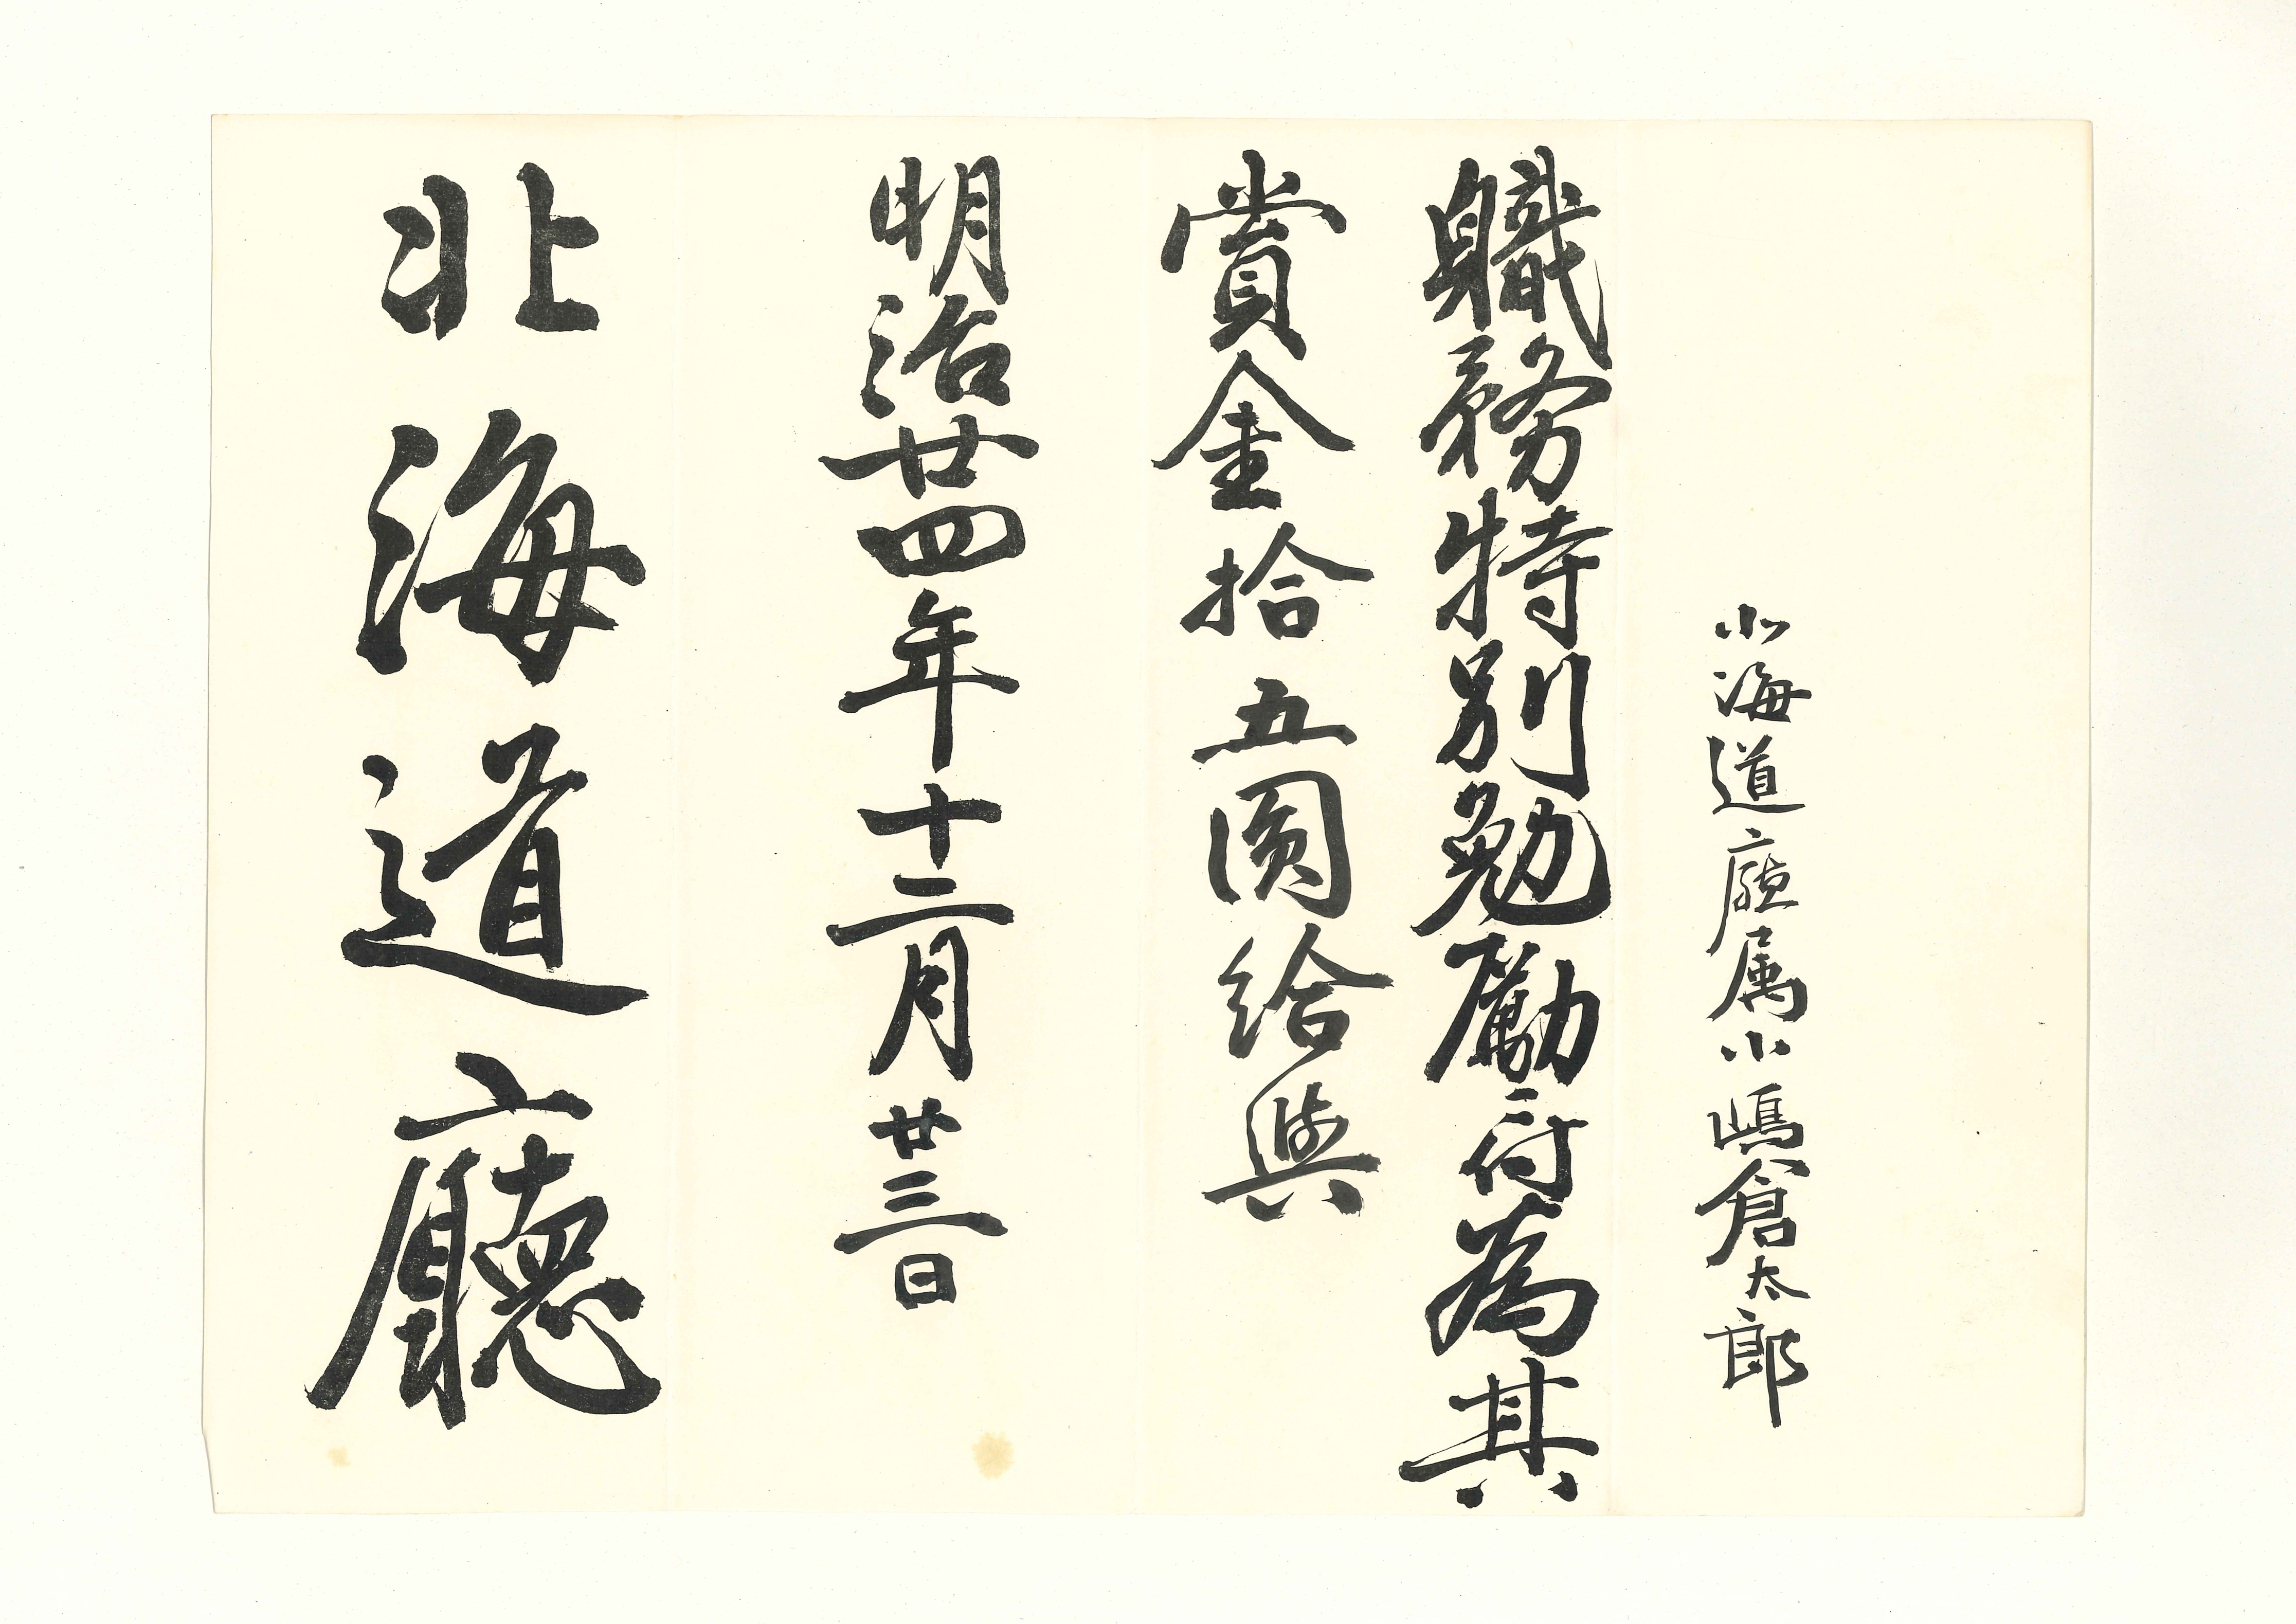 北海道廳属小嶋倉太郎
職務特別勉勵ニ付為其
賞金拾五圓給與
明治廿四年十二月廿三日
北海道廳